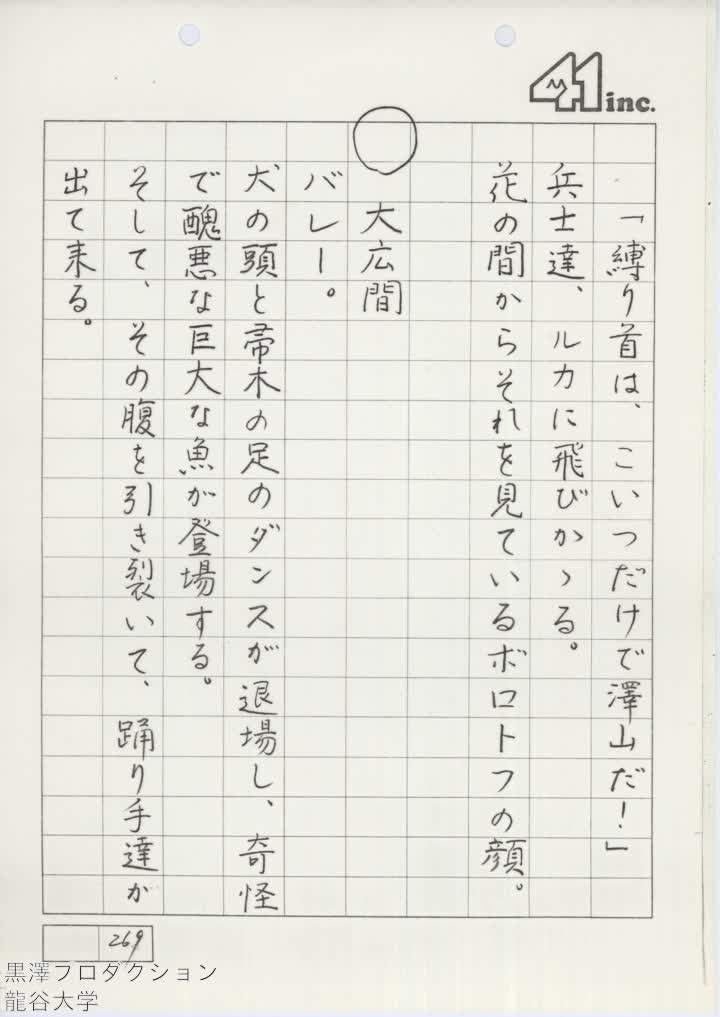 41 inc.
「縛り首は、こいつだけで澤山だ！」
兵士達、ルカに飛びかゝる。
花の間からそれを見ているボロトフの顔。
○　大広間
バレー。
犬の頭と帚木の足のダンスが退場し、奇怪
で醜悪な巨大な魚が登場する。
そして、その腹を引き裂いて、踊り手達が
出て来る。
269
黒澤プロダクション
龍谷大学